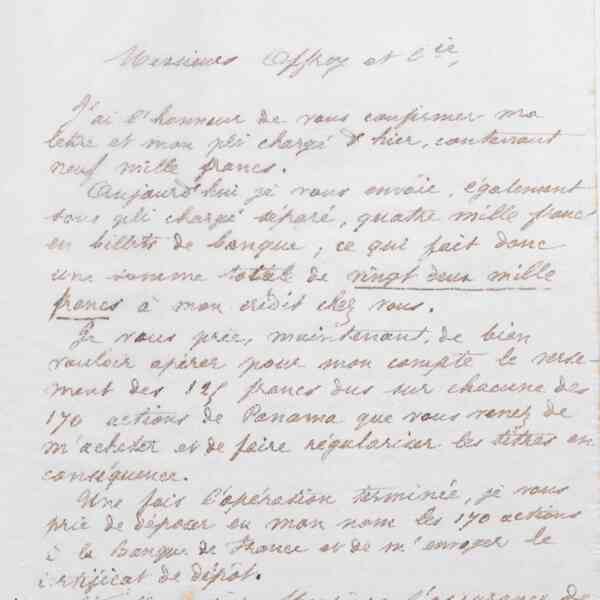 Messieurs Offroy et Cie,
J'ai l'honneur de vous confirmer ma
lettre et mon pli chargé d'hier, contenant
neuf mille francs.
Aujourd'hui je vous envoie, également
sous pli chargé séparé, quatre mille francs
en billets de banque, ce qui fait donc
une somme totale de vingt deux mille
francs à mon crédit chez vous.
Je vous prie, maintenant, de bien
vouloir opérer pour mon compte le verse-
ment des 125 francs dus sur chacune des
170 actions de Panama que vous venez de
m'acheter et de faire régulariser les titres en
conséquence.
Une fois l'opération terminée, je vous
prie de déposer en mon nom les 170 actions
à la Banque de France et de m'envoyer le
certificat de dépôt.
l'assurance de